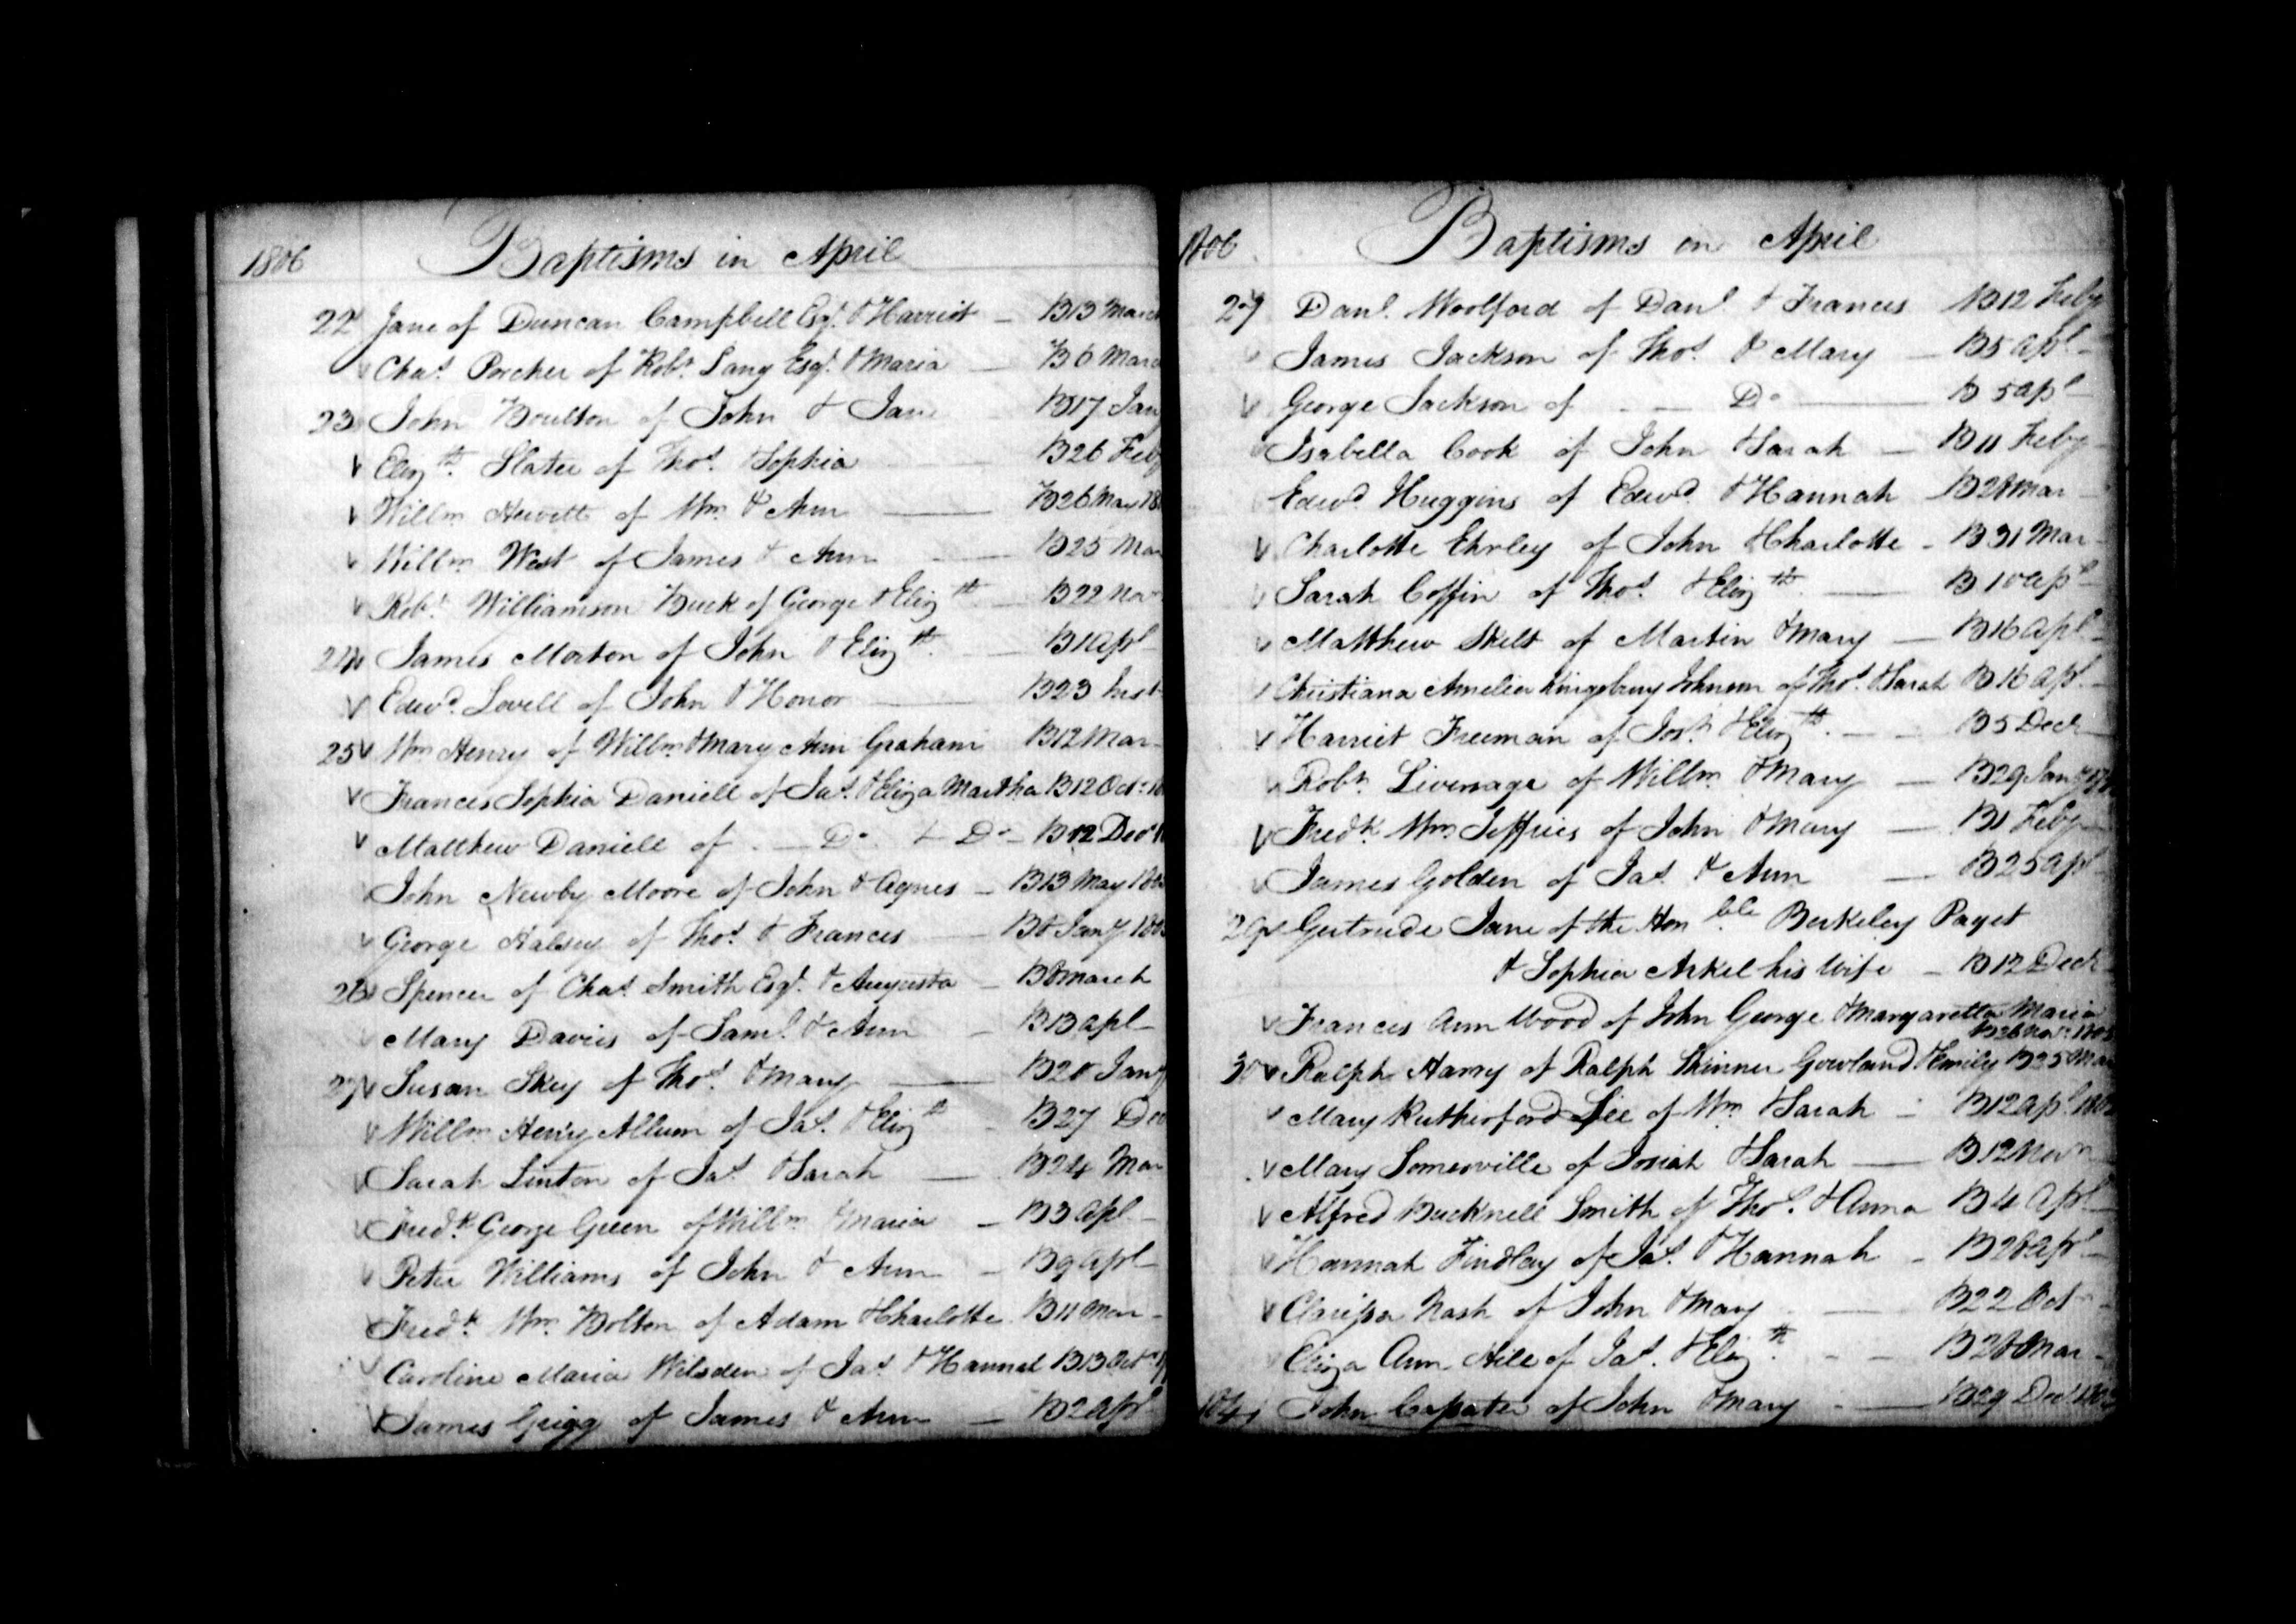 1806 Baptisms in April
22 Jane of Duncan Campbell Esqr. & Harriot — B 13 March
Chas. Porcher of Robt. Lang Esqr. & Maria — B 6 Marc
23 John Boulton of John & Jane B 17 Jany
Elizth. Slater of Thos. & Sophia — B 26 Feby
Willm Hewett of Wm. & Ann — B 26 Mar 180
Willm West of James & Ann — B 25 Mar
Robt. Williamson Buck of George & Elizth. — B 22 Nov
24 James Morton of John & Elizth. — B 1 Apl
Edwd. Lovell of John & Honor — B 23 Inst
25 Wm Henry of Willm & Mary Ann Graham B 12 Mar
Frances Sophia Daniell of Jas. & Eliza Martha B 12 Oct 18
Matthew Daniell of — Do. & Do — B 12 Decr 1
John Newby Moore of John & Agnes — B 13 May 180
George Halsey of Thos. & Frances — B 8 Jany 180
26 Spencer of Chas. Smith Esqr. & Augusta — B 8 March
Mary Davies of Saml. & Ann — B 13 Apl
27 Susan Skey of Thos. & Mary — B 20 Jany
Willm Henry Allum of Jas. & Elizth - B 27 Dec
Sarah Linton of Jas. & Sarah — B 24 Mar
Fredk. George Green of Willm & Maria — B 3 Apl
Peter Williams of John & Ann — B 9 Apl
Fredk. Wm. Bolton of Adam & Charlotte B 11 Mar
Caroline Maria Wilsden of Jas. & Hannah B 13 Octr
James Grigg of James & Ann — B 2 Apl
1806 Baptisms in April
27 Danl. Woolford of Danl. & Frances B 12 Feby
James Jackson of Thos. & Mary — B 5 Apl
George Jackson of — Do — B 5 Apl
Isabella Cook of John & Sarah — B 11 Feby
Edwd. Huggins of Edwd. & Hannah B 28 Mar
Charlotte Ehrley of John & Charlotte - B 31 Mar
Sarah Coffin of Thos. & Elizth. — B 10 Apl
Matthew Skelt of Martin & Mary — B 16 Apl
Christiana Amelia Kingsbury Johnson of Thos. & Sarah B 16 Apl
Harriet Freeman of Josh. & Elizth. — B 5 Decr
Robt. Livenage of Willm & Mary — B 29 Jany
Fredk. Wm. Jeffries of John & Mary — B 1 Feby
James Golden of Jas. & Ann — B 25 Apl
29 Gertrude Jane of the Honble. Berkeley Paget
& Sophia Askel his Wife — B 12 Decr
Frances Ann Wood of John George & Margaretta Maria
B 26 Novr. 1805
30 Ralph Harry of Ralph Skinner Gowland & Emily B 25 Mar
Mary Rutherford Lee of Wm. & Sarah — B 12 Apl 180
Mary Somerville of Josiah & Sarah — B 12 Novr
Alfred Bucknell Smith of Thos. & Anna B 4 Apl
Hannah Findlay of Jas. & Hannah - B 26 Apl
Clarissa Nash of John & Mary — B 22 Oct
Eliza Ann Hill of Jas. & Elizth. - B 28 Mar
John Capater of John & Mary — B 29 Decr 180